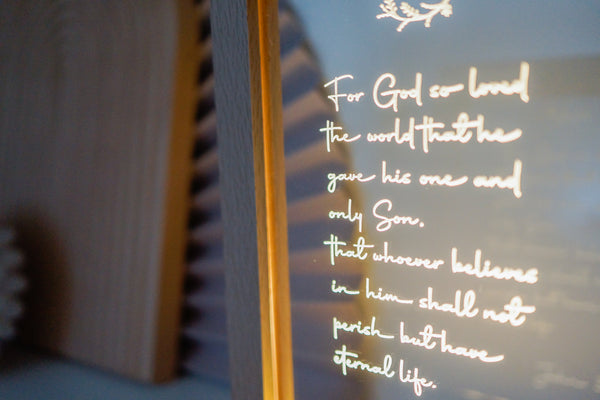 For God so loved
the world that he
gave his one and
only Son.
that whoever believes
in him shall not
perish but have
eternal life.